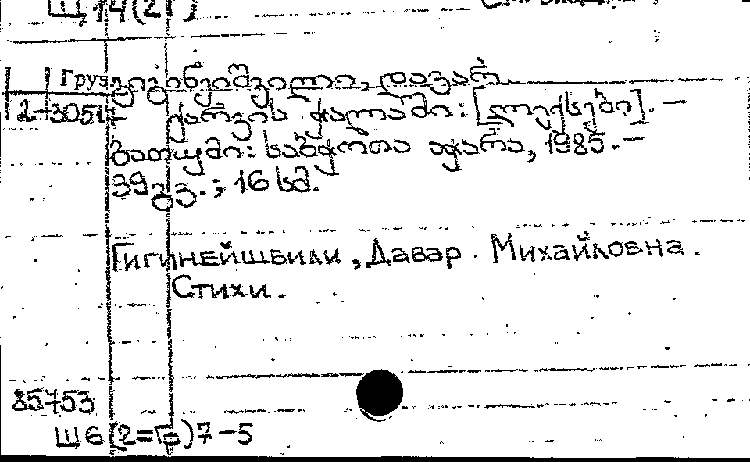 Щ14(2Г)
Груз. გიგინეიშვილი, დავარ.
2-3051 ქარვის ჭალაში: [ლექსები]. —
ბათუმი: საბჭოთა აჭარა, 1985. —
39 გვ. ; 16 სმ.
Гигинейшвили, Давар Михайловна.
Стихи.
85753
Ш6(2=Гр)7-5